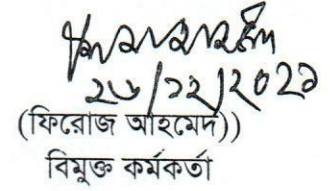 ২৬/১২/২০২১
(ফিরোজ আহমেদ))
বিমুক্ত কর্মকর্তা